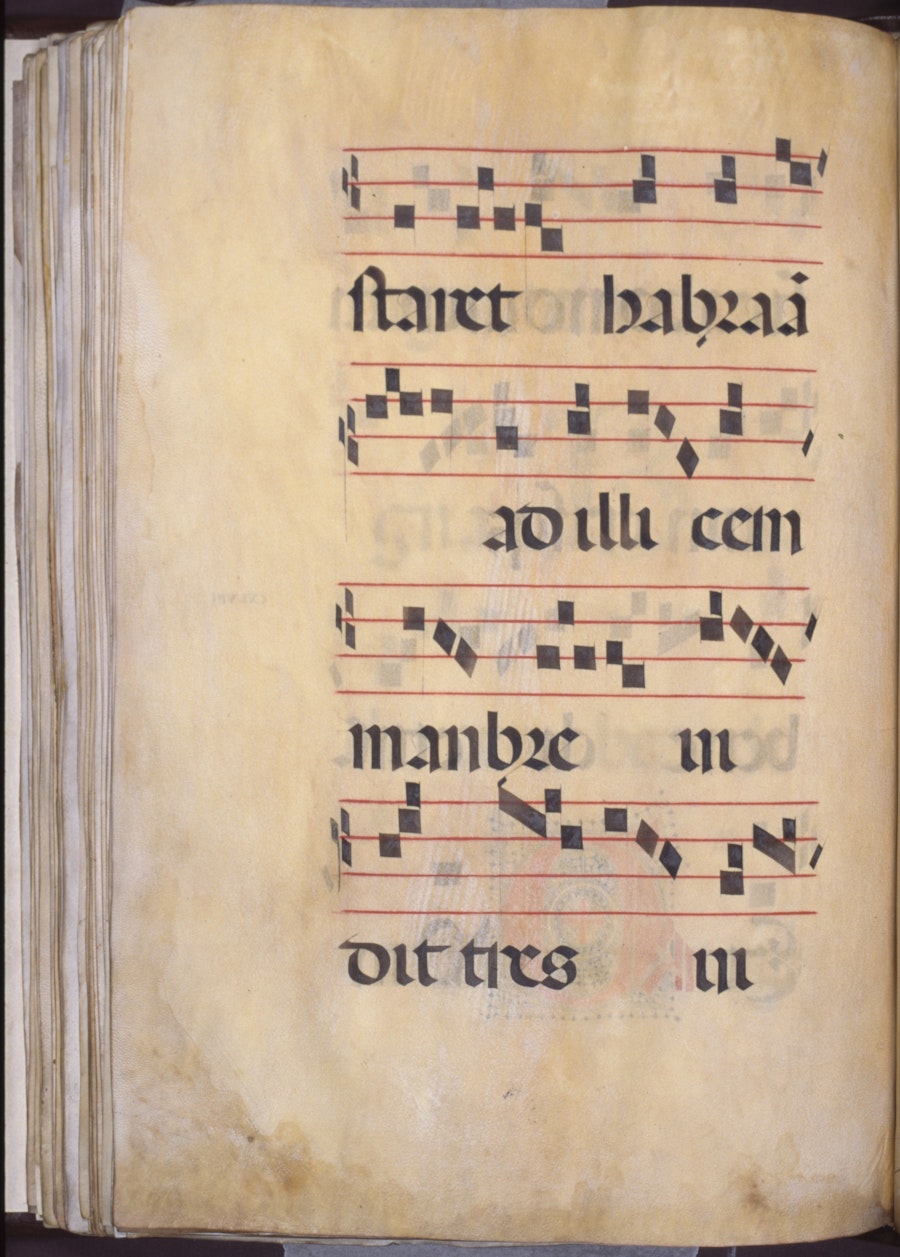 staret habraã
ad illi cem
manbre in
dit tres in